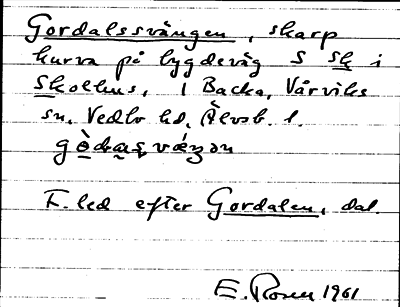 Gordalssvängen, skarp
kurva på bygdeväg S sk i
Skolhus, 1 Backa, Vårviks
sn, Vedbo hd, Älvsb. l.
F. led efter Gordalen, dal.
E. Rosen 1961